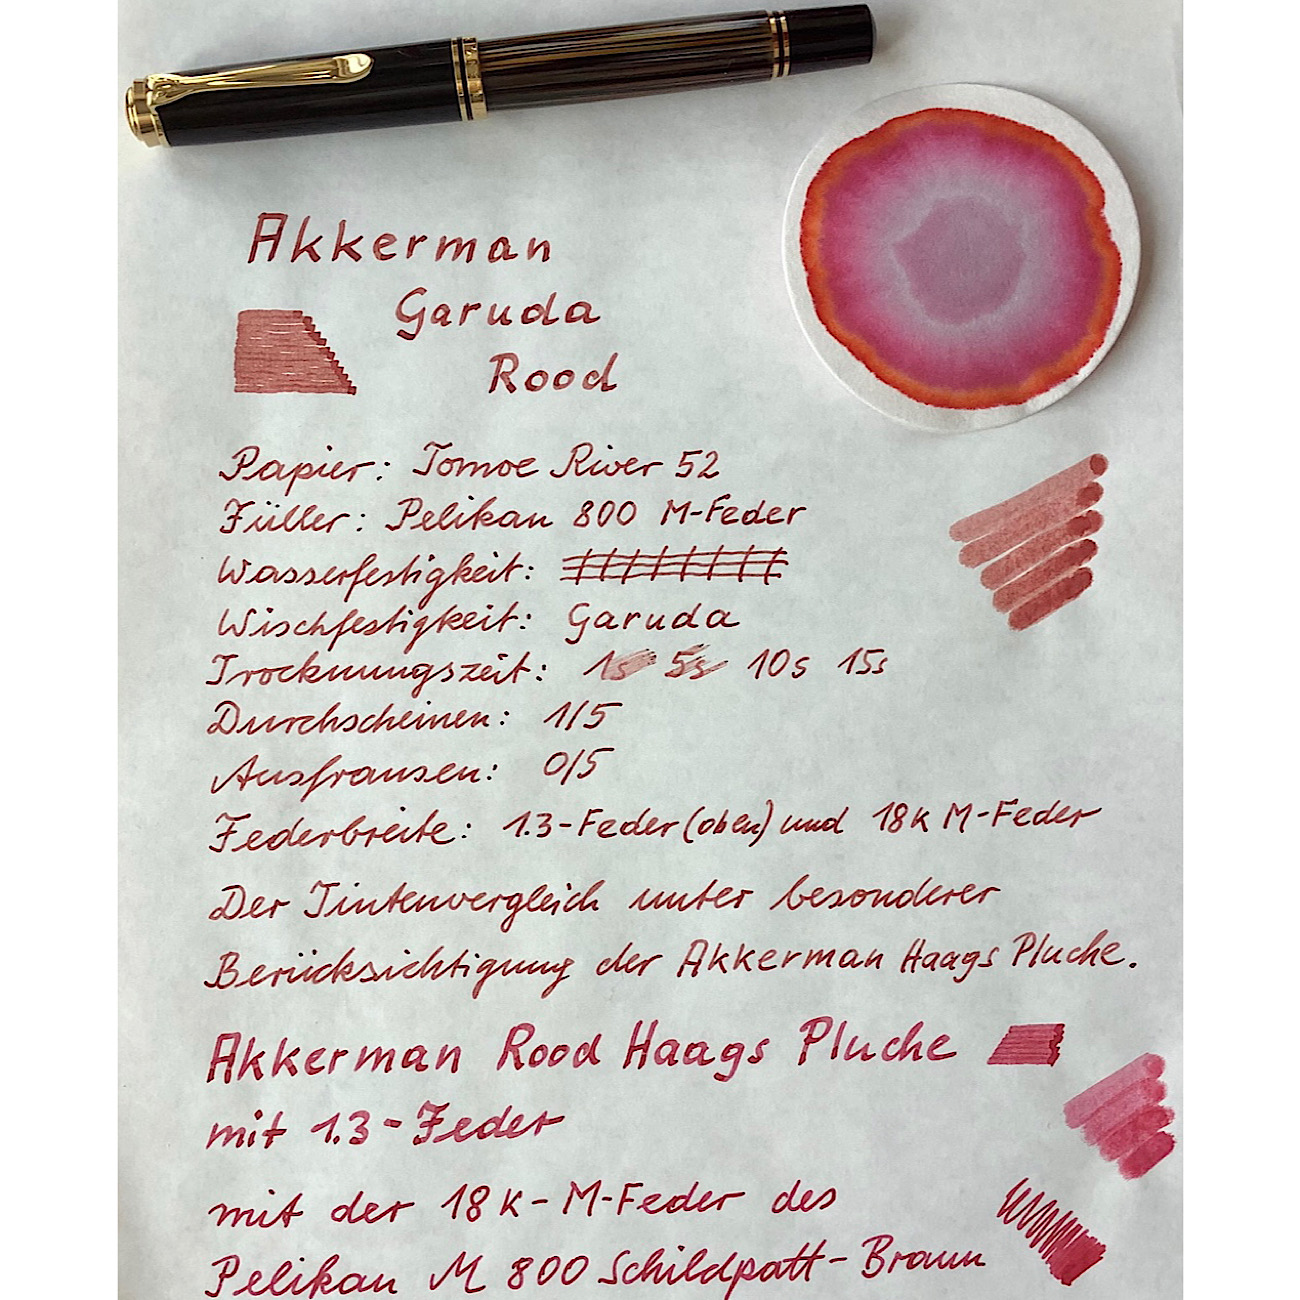 Akkerman
Garuda
Rood
Papier: Tomoe River 52
Füller: Pelikan 800 M-Feder
Wasserfestigkeit:
Wischfestigkeit: Garuda
Trocknungszeit: 1s 5s 10s 15s
Durchscheinen: 1/5
Ausfransen: 0/5
Federbreite: 1.3-Feder (oben) und 18K M-Feder
Der Tintenvergleich unter besonderer
Berücksichtigung der Akkerman Haags Pluche.
Akkerman Rood Haags Pluche
mit 1.3-Feder
mit der 18K-M-Feder des
Pelikan M 800 Schildpatt-Braun